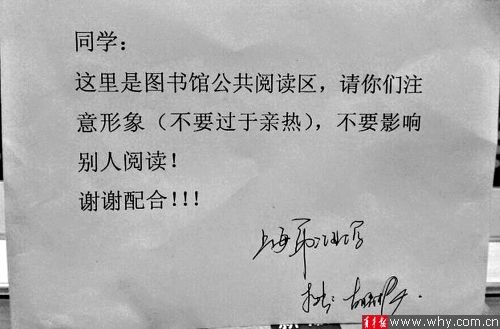 同学：
这里是图书馆公共阅读区，请你们注
意形象（不要过于亲热），不要影响
别人阅读！
谢谢配合！！！
上海
青年报 www.why.com.cn